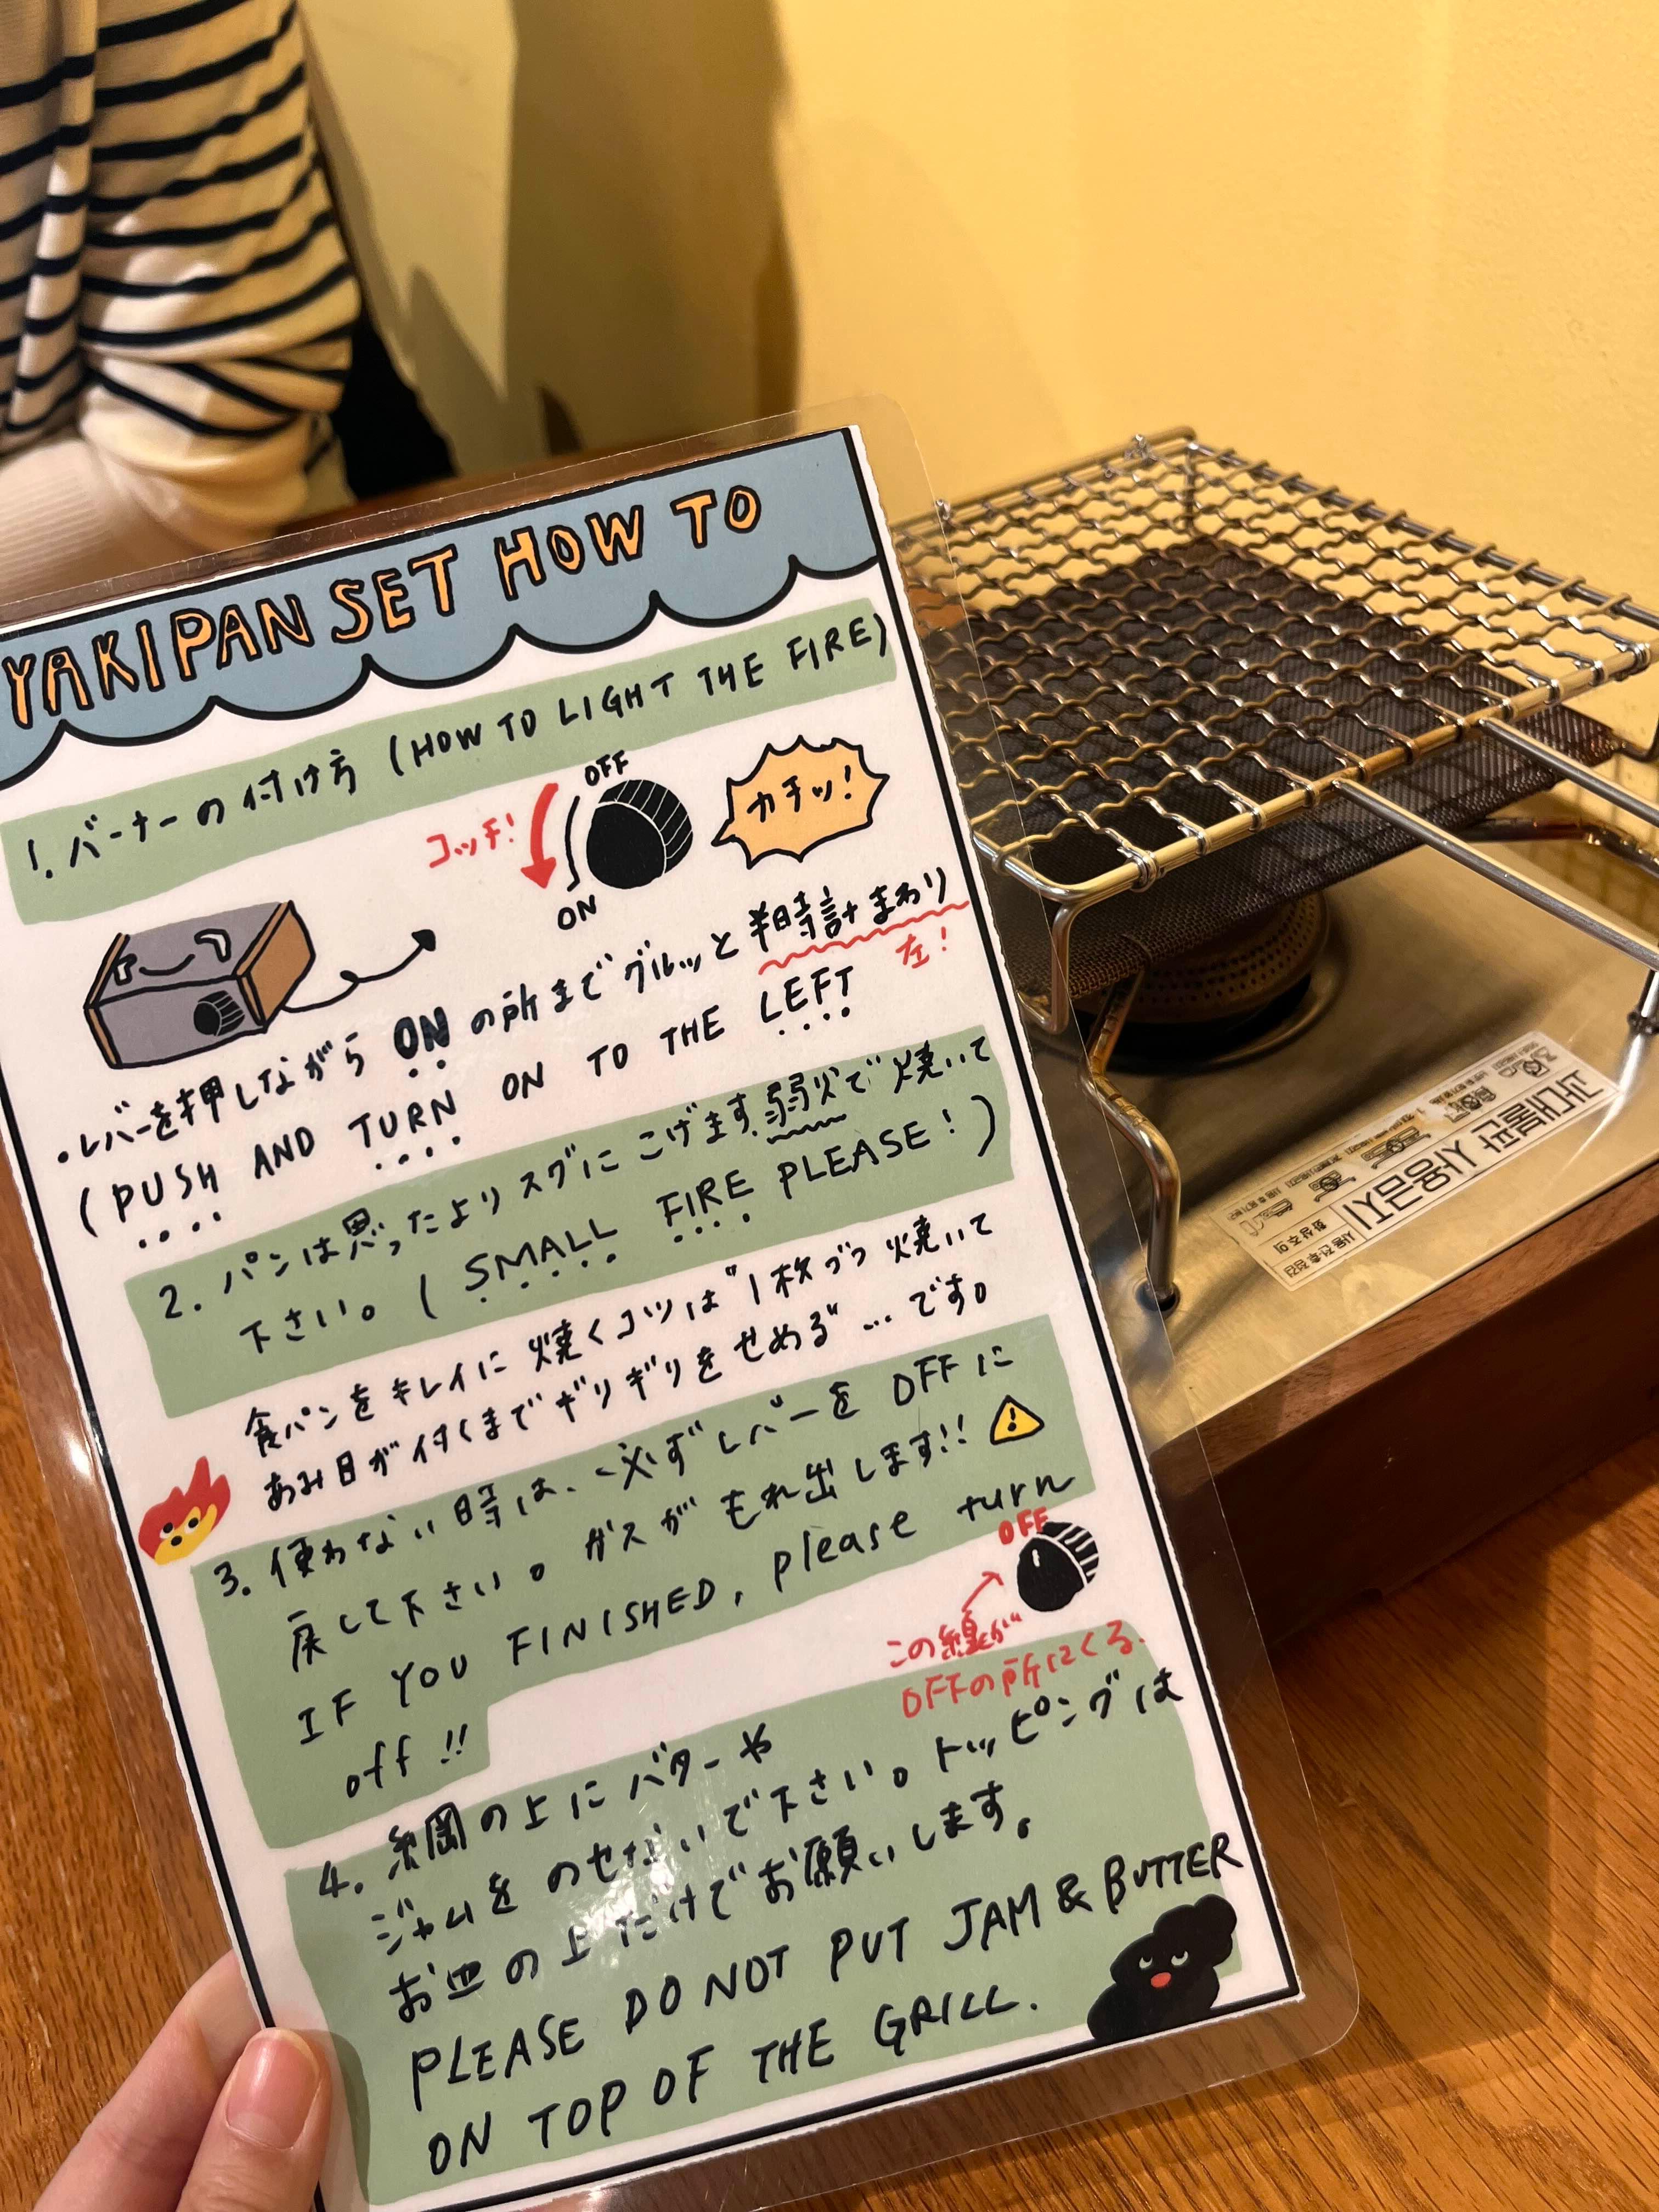 YAKIPAN SET HOW TO
1. バーナーの付け方 (HOW TO LIGHT THE FIRE)
OFF
コッチ!
カチッ!
ON
・レバーを押しながら ONの所までグルッと半時計まわり
左!
(PUSH AND TURN ON TO THE LEFT
2. パンは思ったよりスグにこげます.弱火で焼いて
下さい。 (SMALL FIRE PLEASE!)
食パンをキレイに焼くコツは"1枚づつ焼いて
あみ目が付くまでギリギリをせめる"…です。
3. 使わない時は、必ずレバーをOFFに
戻して下さい。ガスがもれ出します!!
IF YOU FINISHED, please turn
off!!
OFF
この線が
OFFの所にくる.
4. 網の上にバターや
ジャムをのせないで下さい。トッピングは
お皿の上だけでお願いします。
PLEASE DO NOT PUT JAM & BUTTER
ON TOP OF THE GRILL.
과대불판 사용금지
화상주의